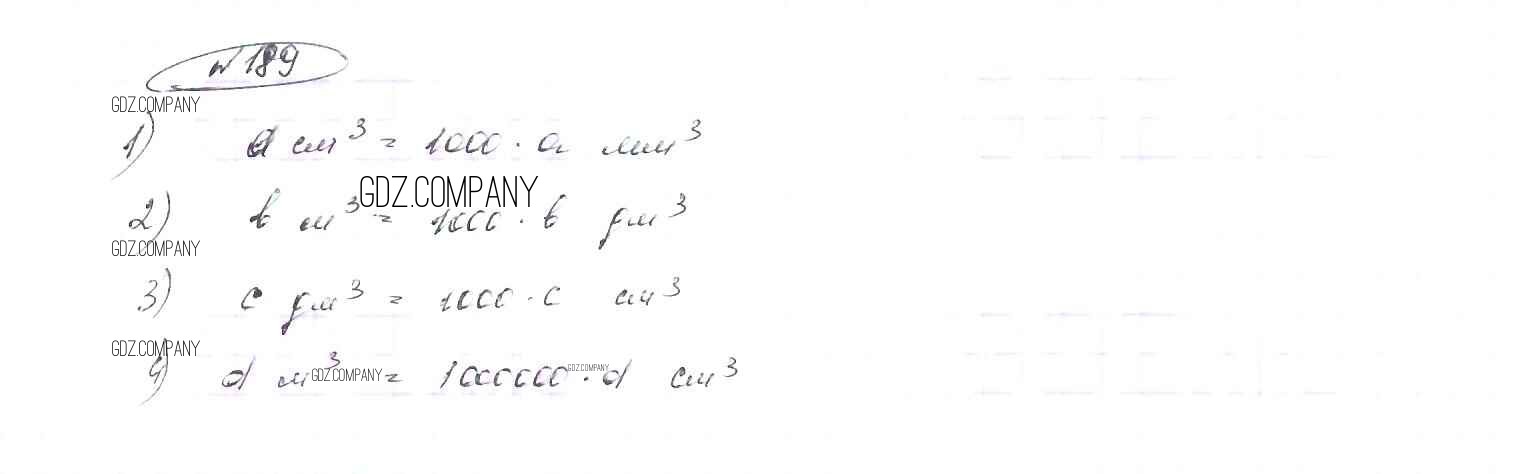 № 189
GDZ.COMPANY
1) a см³ = 1000 · a мм³
GDZ.COMPANY
2) b м³ = 1000 · b дм³
GDZ.COMPANY
3) c дм³ = 1000 · c см³
GDZ.COMPANY
4) d м³ = 1000000 · d см³
GDZ.COMPANY
GDZ.COMPANY